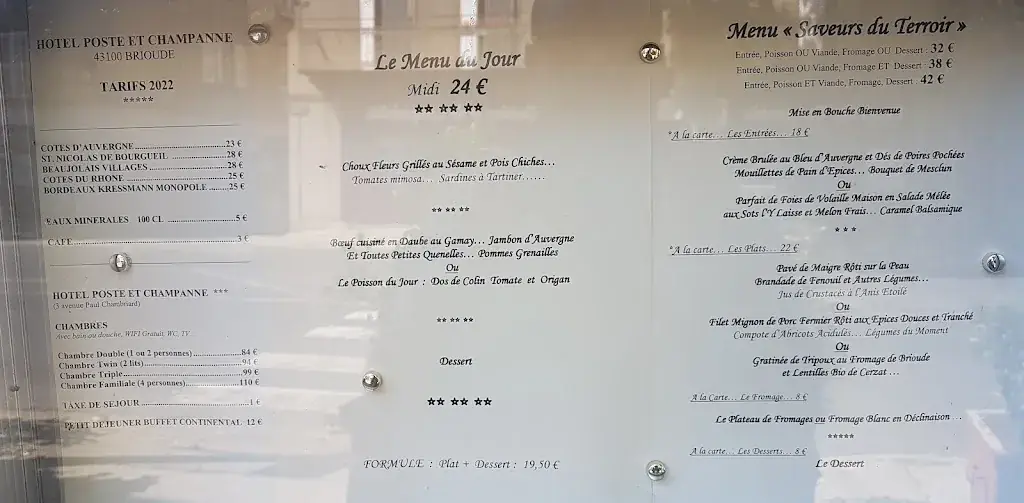 HOTEL POSTE ET CHAMPANNE
43100 BRIOUDE
TARIFS 2022
*****
COTES D'AUVERGNE.....23 €
ST. NICOLAS DE BOURGUEIL .....28 €
BEAUJOLAIS VILLAGES.....28 €
COTES DU RHONE.....25 €
BORDEAUX KRESSMANN MONOPOLE.....25 €
EAUX MINERALES 100 CL .....5 €
CAFE.....3 €
HOTEL POSTE ET CHAMPANNE ***
(3 avenue Paul Chambriard)
CHAMBRES
Avec bain ou douche, WIFI Gratuit, WC, TV
Chambre Double (1 ou 2 personnes).....84 €
Chambre Twin (2 lits).....94 €
Chambre Triple.....99 €
Chambre Familiale (4 personnes).....110 €
TAXE DE SEJOUR.....1 €
PETIT DEJEUNER BUFFET CONTINENTAL 12 €
Le Menu du Jour
Midi 24 €
☆☆ ☆☆ ☆☆
Choux Fleurs Grillés au Sésame et Pois Chiches...
Tomates mimosa... Sardines à Tartiner......
** ** **
Bœuf cuisiné en Daube au Gamay... Jambon d'Auvergne
Et Toutes Petites Quenelles... Pommes Grenailles
Ou
Le Poisson du Jour : Dos de Colin Tomate et Origan
** ** **
Dessert
☆☆ ☆☆ ☆☆
FORMULE : Plat + Dessert : 19,50 €
Menu « Saveurs du Terroir »
Entrée, Poisson OU Viande, Fromage OU Dessert : 32 €
Entrée, Poisson OU Viande, Fromage ET Dessert : 38 €
Entrée, Poisson ET Viande, Fromage, Dessert : 42 €
Mise en Bouche Bienvenue
*A la carte... Les Entrées... 18 €
Crème Brulée au Bleu d'Auvergne et Dés de Poires Pochées
Mouillettes de Pain d'Epices... Bouquet de Mesclun
Ou
Parfait de Foies de Volaille Maison en Salade Mêlée
aux Sots l'Y Laisse et Melon Frais... Caramel Balsamique
* * *
*A la carte... Les Plats... 22 €
Pavé de Maigre Rôti sur la Peau
Brandade de Fenouil et Autres Légumes...
Jus de Crustacés à l'Anis Etoilé
Ou
Filet Mignon de Porc Fermier Rôti aux Epices Douces et Tranché
Compote d'Abricots Acidulés... Légumes du Moment
Ou
Gratinée de Tripoux au Fromage de Brioude
et Lentilles Bio de Cerzat ...
A la Carte... Le Fromage... 8 €
Le Plateau de Fromages ou Fromage Blanc en Déclinaison ...
*****
A la carte... Les Desserts... 8 €
Le Dessert